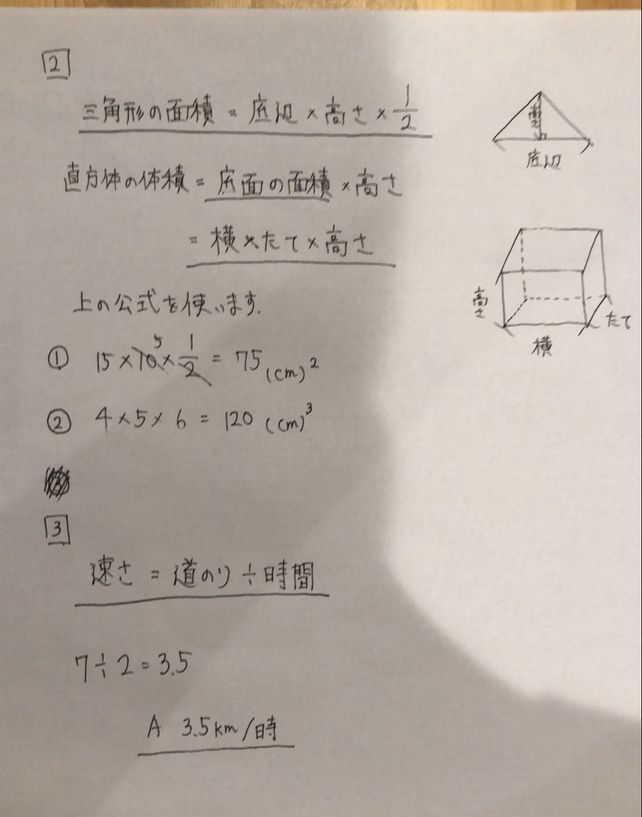 2
三角形の面積 = 底辺 × 高さ × 1/2
高さ
底辺
直方体の体積 = 底面の面積 × 高さ
= 横 × たて × 高さ
高さ
たて
横
上の公式を使います.
① 15 × 10 5 × 1/2 = 75 (cm)²
② 4 × 5 × 6 = 120 (cm)³
3
速さ = 道のり ÷ 時間
7 ÷ 2 = 3.5
A 3.5km/時